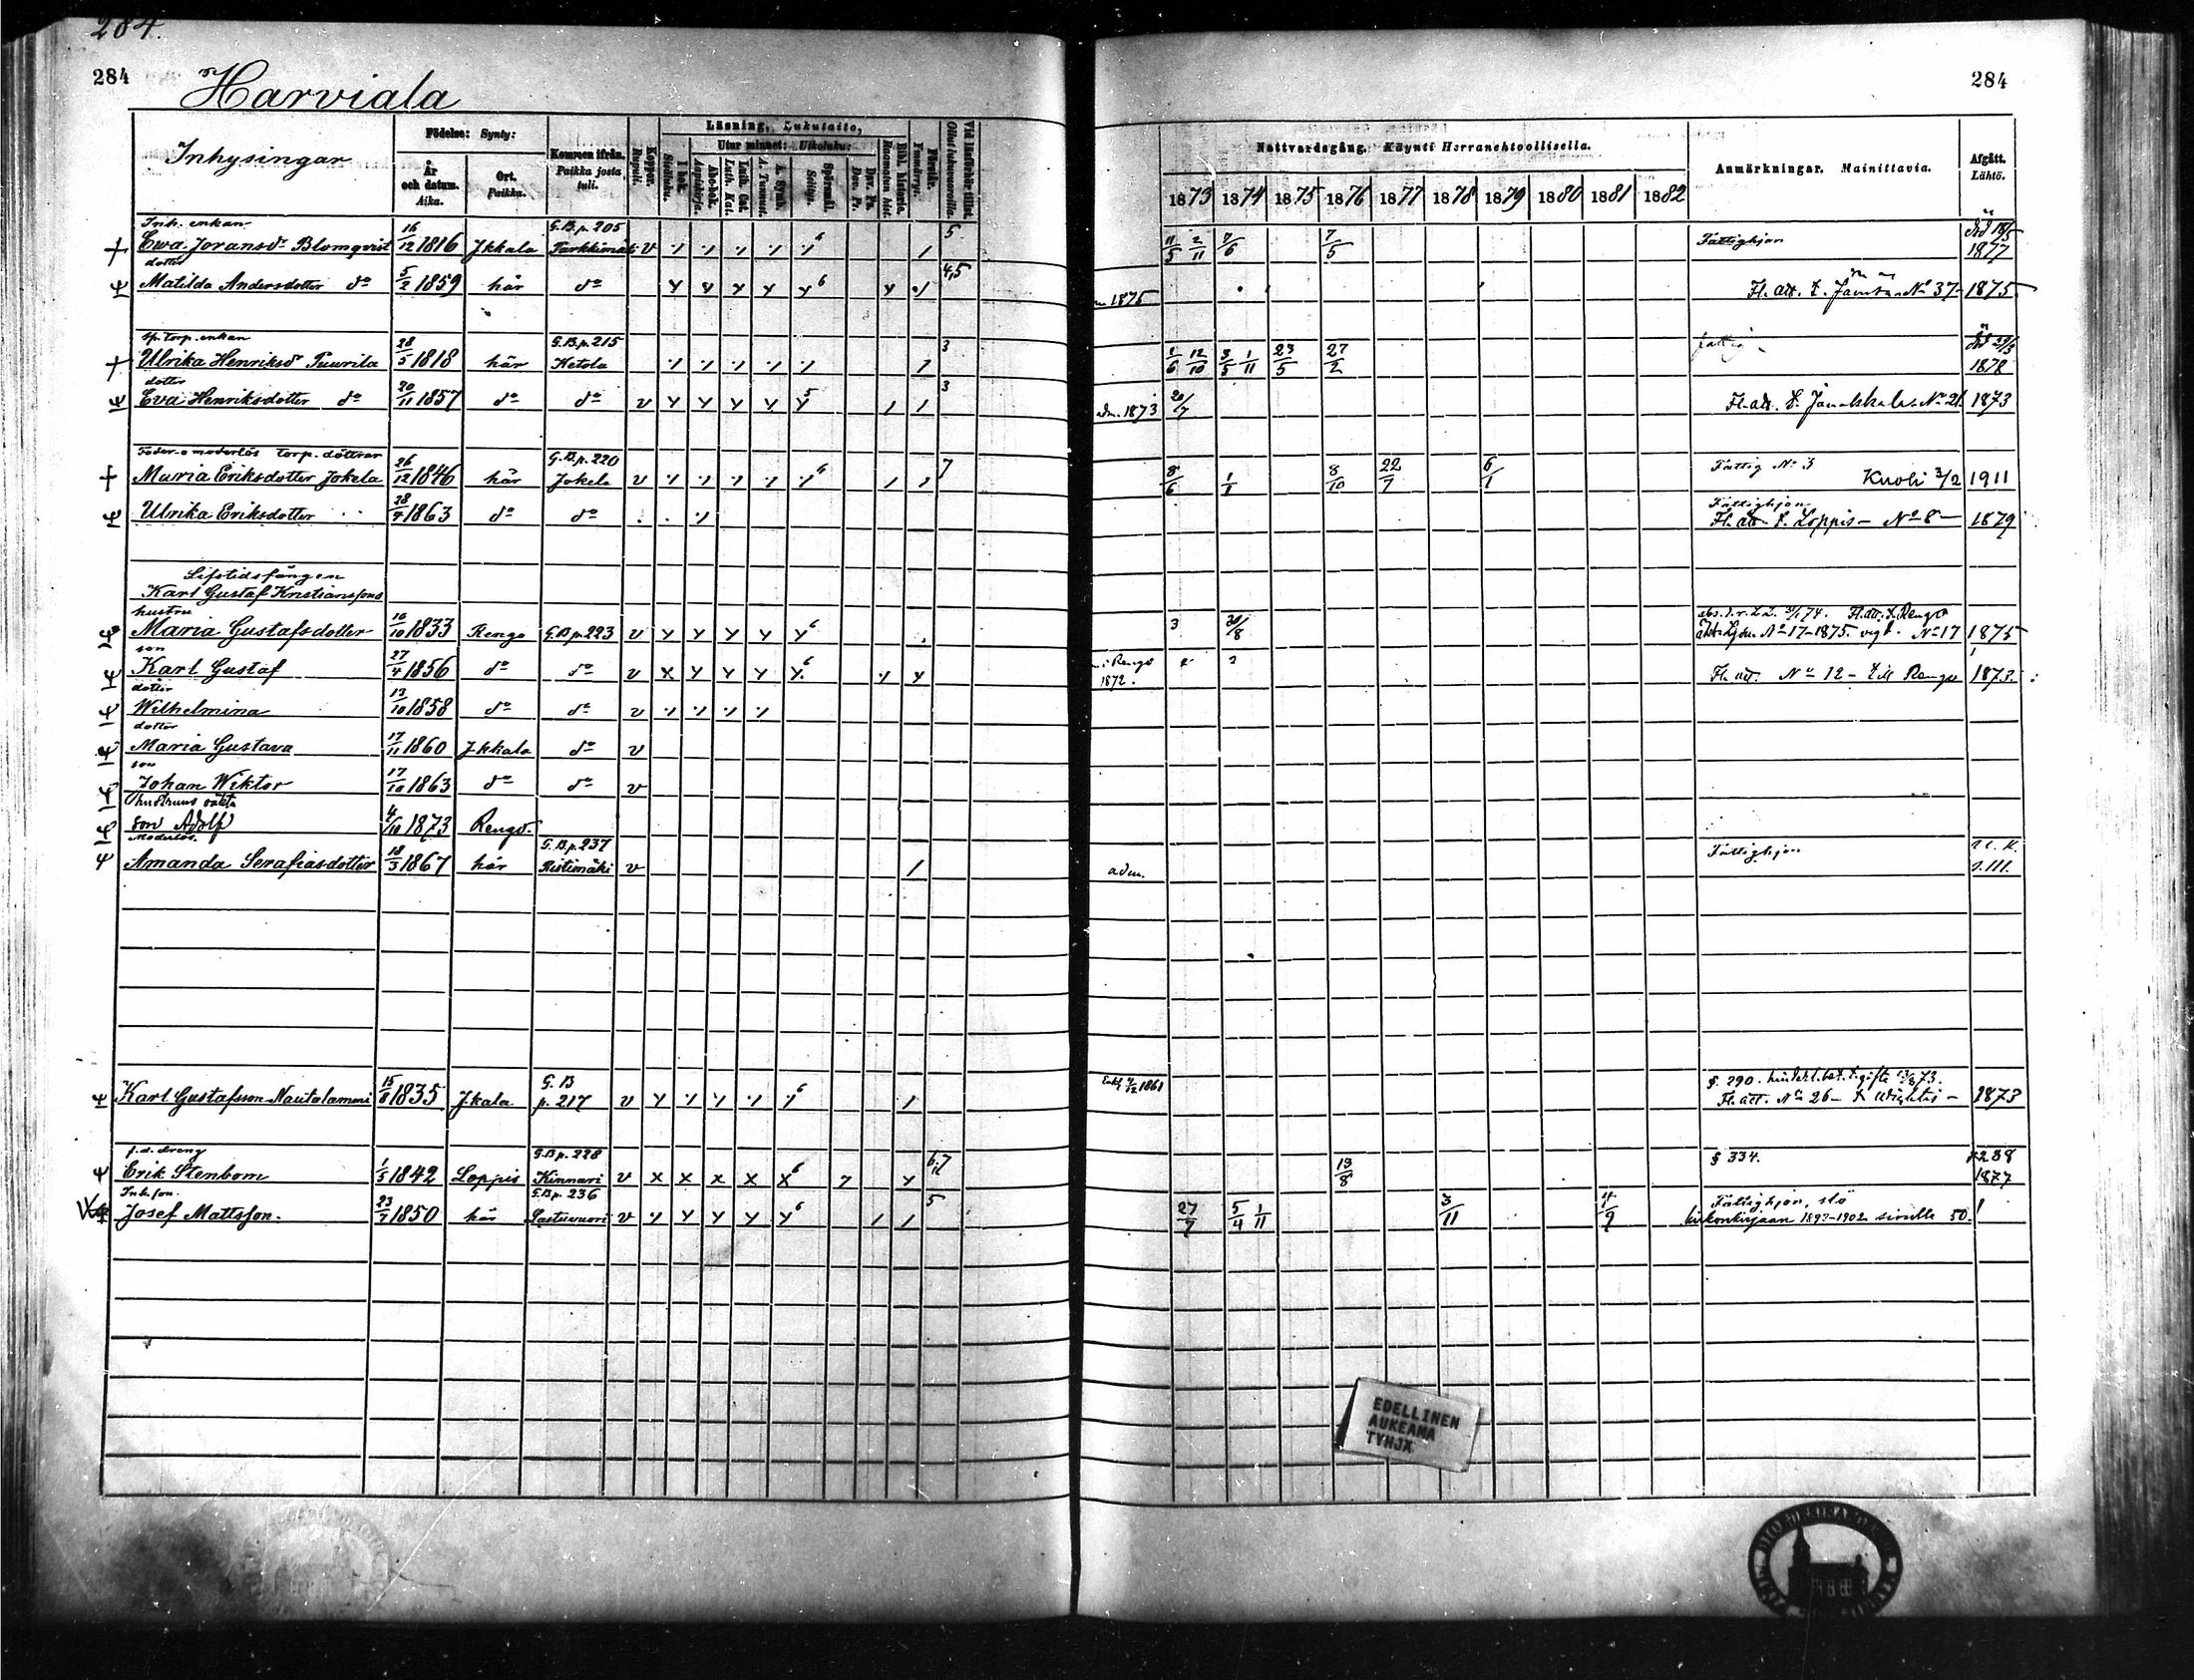 284.
284
Harviala
284
Inhysingar
Födelse: Synty:
År och datum. Aika.
Ort. Paikka.
Kommen ifrån. Paikka josta tuli.
Koppor. Rupuli.
Läsning, Lukutaito,
Utur minnet: Ulkoluku:
I bok. Sisäluku.
Abc-bok. Aapiskirja.
Luth. Cat. Luth. Kat.
A. Symb.
Spörsmål. Selitys.
Dav. Ps. Dav. Ps.
Bibl. historie. Raamatun hist.
Förstår. Ymmärrys.
Vid läsförhör tillst. Ollut lukuvuoroilla.
Nattvardsgång. Käynti Herranehtoollisella.
1873 1874 1875 1876 1877 1878 1879 1880 1881 1882
Anmärkningar. Mainittavia.
Afgått. Lähtö.
Inh. enkan G.B.p. 205 5
Ewa Joransdr Blomqvist 16/12 1816 Jkkala Parkkimäki v 6 11/5 2/11 7/6 7/5 Fattighjon död 18/5 1877
dotter 4,5
Matilda Andersdotter do 5/2 1859 här do 6 1875 Fl. att. t. No 37- 1875
enkan G.B.p. 215 3
Ulrika Henriksdr Tuurila 28/5 1818 här Ketola 2/6 12/10 3/5 1/11 23/5 27/2 fattig 1878
dotter 3
Eva Henriksdotter do 20/11 1857 do do v 5 adm. 1873 20/7 Fl. att. t. Janakkala No 21. 1873
Fader- o moderlös torp. döttrar G.B.p. 220 7
Maria Eriksdotter Jokela 26/12 1846 här Jokela v 6 8/6 1/1 8/10 22/7 6/1 Fattig No 3 Kuoli 3/2 1911
Ulrika Eriksdotter 28/4 1863 do do Fattighjon Fl. att. t. Loppis - No 8 - 1879
Lifstidsfången
Karl Gustaf Kristianssons
hustru
Maria Gustafsdotter 16/10 1833 Rengo G.B.p. 223 v 6 3 30/8 Fl. att. t. Rengo No 17-1875. No 17 1875
son
Karl Gustaf 27/4 1856 do do v 6 i Rengo 1872. Fl. att. No 12 - till Rengo 1873.
dotter
Wilhelmina 13/10 1858 do do v
dotter
Maria Gustava 17/11 1860 Jkkala do v
son
Johan Wiktor 17/10 1863 do do v
hustruns oäkta
son Adolf 4/10 1873 Rengo.
Moderlös. G.B.p. 237
Amanda Serafiasdotter 18/3 1867 här Ristimäki v adm. Fattighjon s. III.
Karl Gustafsson Nautalammi 15/8 1835 J.kala G.B p. 217 v 6 1861 §. 290. 13/8 73. Fl. att. No 26 - 1873
f.d. dreng G.B.p. 228 6,7
Erik Stenbom 1/5 1842 Loppis Kinnari v 6 13/8 § 334. 238 1877
Inh. son. G.B.p. 236 5
Josef Mattsson. 23/7 1850 här v 6 27/7 5/4 1/11 3/11 4/9 Fattighjon, slö
kirkonkirjaan 1893-1902 sivulle 50.
EDELLINEN
AUKEAMA
TYHJÄ